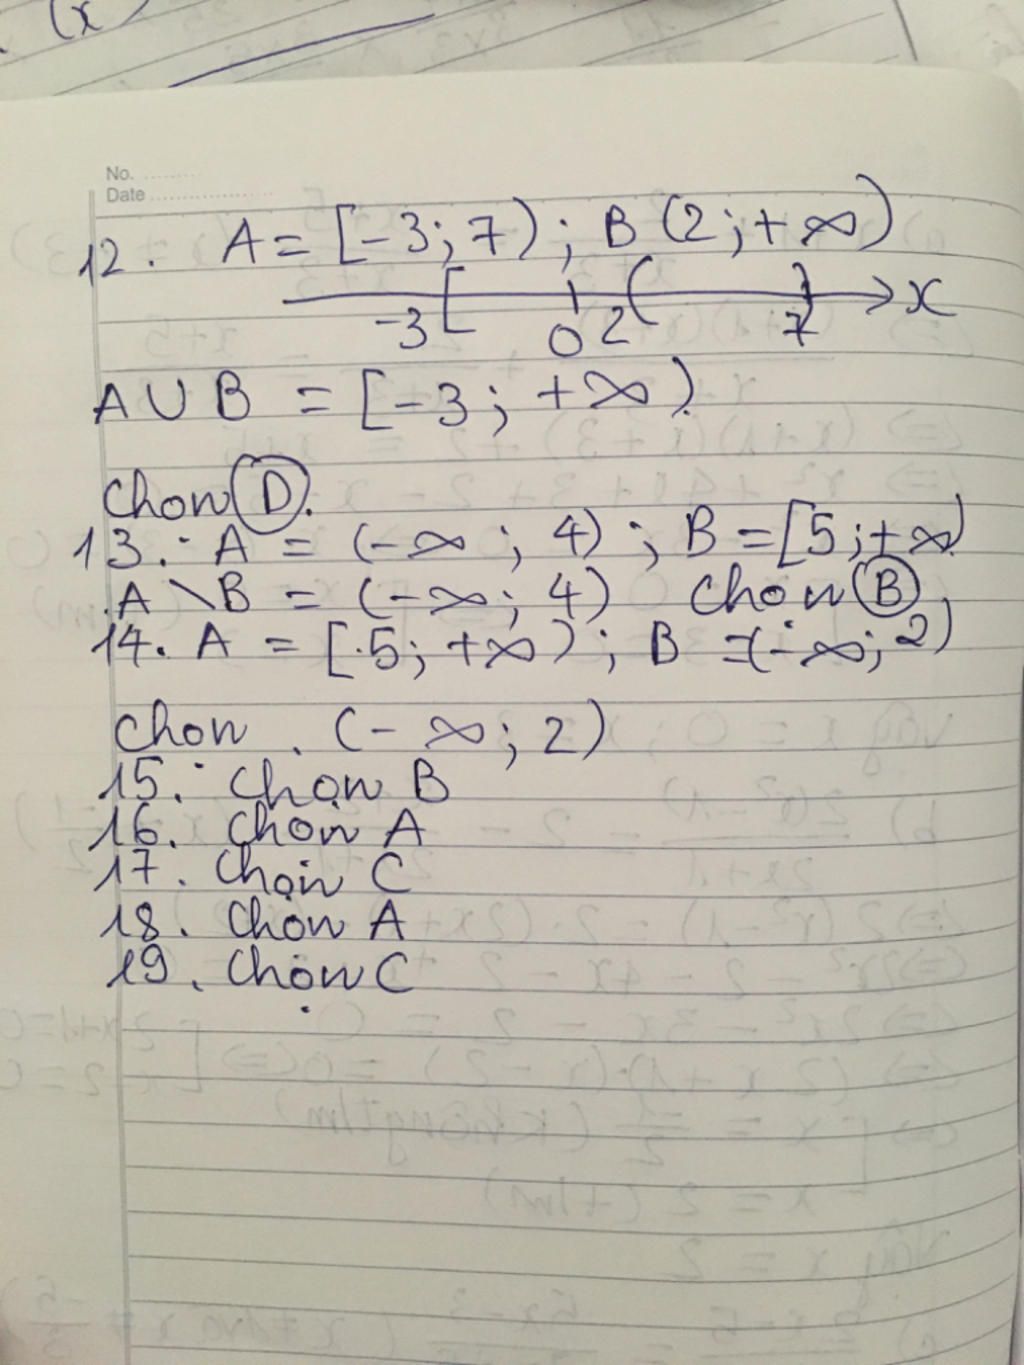 (x
No. ............
Date ............
12. A = [-3; 7) ; B (2; +∞)
-3 [ 0 2 ( 7 ) x
A ∪ B = [-3; +∞).
Chọn D.
13. A = (-∞; 4) ; B = [5; +∞)
A \ B = (-∞; 4) Chọn B.
14. A = [5; +∞) ; B = (-∞; 2)
Chọn (-∞; 2)
15. Chọn B
16. Chọn A
17. Chọn C
18. Chọn A
19. Chọn C